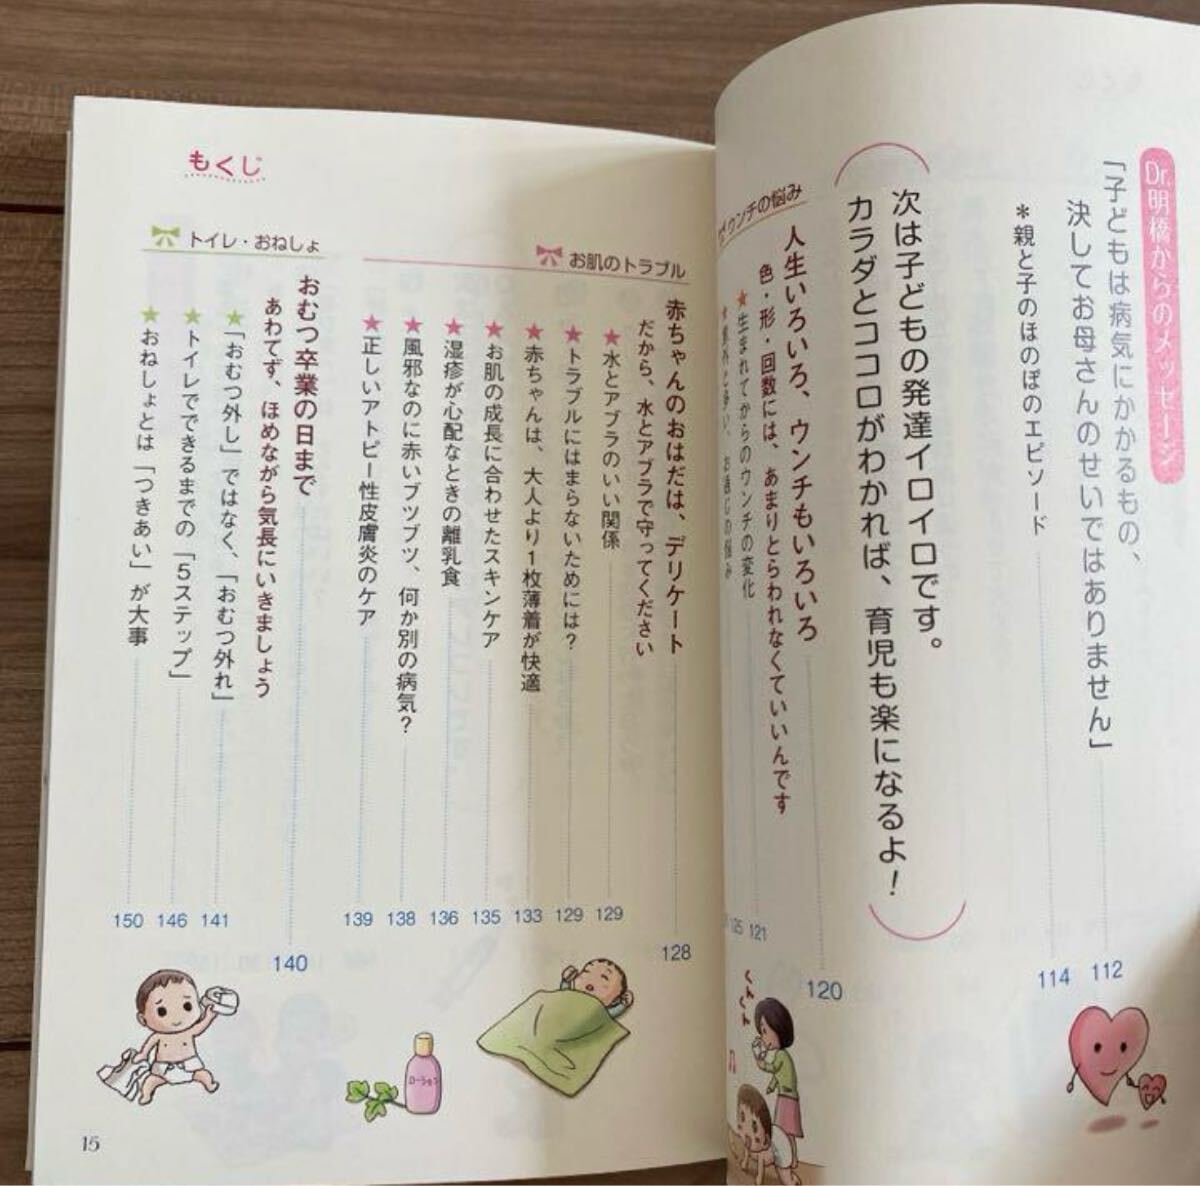 Dr.明橋からのメッセージ
「子どもは病気にかかるもの、
決してお母さんのせいではありません」
112
*親と子のほのぼのエピソード
114
次は子どもの発達イロイロです。
カラダとココロがわかれば、育児も楽になるよ！
ウンチの悩み
人生いろいろ、ウンチもいろいろ
120
色・形・回数には、あまりとらわれなくていいんです
★生まれてからのウンチの変化
121
★意外と多い、お通じの悩み
125
くんくん
もくじ
お肌のトラブル
赤ちゃんのおはだは、デリケート
128
だから、水とアブラで守ってください
★水とアブラのいい関係
129
★トラブルにはまらないためには？
129
★赤ちゃんは、大人より1枚薄着が快適
133
★お肌の成長に合わせたスキンケア
135
★湿疹が心配なときの離乳食
136
★風邪なのに赤いブツブツ、何か別の病気？
138
★正しいアトピー性皮膚炎のケア
139
トイレ・おねしょ
おむつ卒業の日まで
140
あわてず、ほめながら気長にいきましょう
★「おむつ外し」ではなく、「おむつ外れ」
141
★トイレでできるまでの「5ステップ」
146
★おねしょとは「つきあい」が大事
150
ローション
15